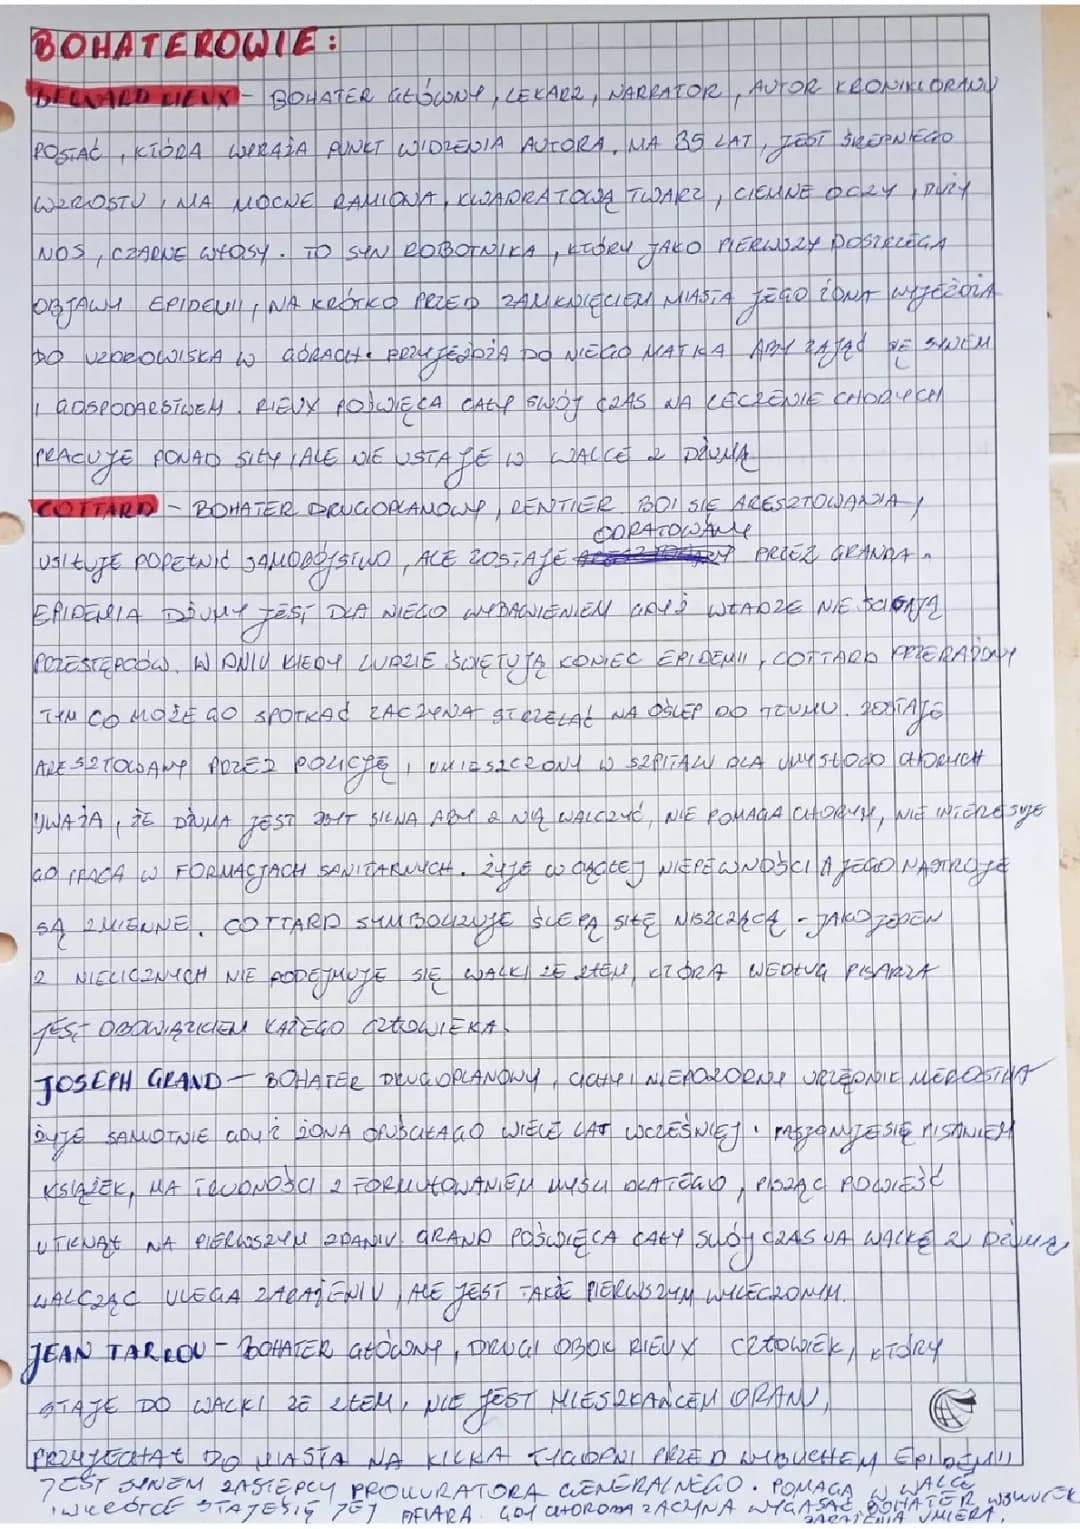 BOHATEROWIE:
BERNARD RIEUX - BOHATER GŁÓWNY, LEKARZ, NARRATOR, AUTOR KRONIKI ORANU
POSTAĆ, KTÓRA WYRAŻA PUNKT WIDZENIA AUTORA. MA 35 LAT, JEST ŚREDNIEGO
WZROSTU, MA MOCNE RAMIONA, KWADRATOWĄ TWARZ, CIEMNE OCZY, DUŻY
NOS, CZARNE WŁOSY. TO SYN ROBOTNIKA, KTÓRY JAKO PIERWSZY DOSTRZEGA
OBJAWY EPIDEMII, NA KRÓTKO PRZED ZAMKNIĘCIEM MIASTA JEGO ŻONA WYJEŻDŻA
DO UZDROWISKA W GÓRACH. PRZYJEŻDŻA DO NIEGO MATKA ABY ZAJĄĆ SIĘ SYNEM
I GOSPODARSTWEM. RIEUX POŚWIĘCA CAŁY SWÓJ CZAS NA LECZENIE CHORYCH
PRACUJE PONAD SIŁY, ALE NIE USTAJE W WALCE Z DŻUMĄ
COTTARD - BOHATER DRUGOPLANOWY, RENTIER BOI SIĘ ARESZTOWANIA,
ODRATOWANY
USIŁUJE POPEŁNIĆ SAMOBÓJSTWO, ALE ZOSTAJE PRZEZ GRANDA.
EPIDEMIA DŻUMY JEST DLA NIEGO WYBAWIENIEM GDYŻ WŁADZE NIE ŚCIGAJĄ
PRZESTĘPCÓW. W DNIU KIEDY LUDZIE ŚWIĘTUJĄ KONIEC EPIDEMII, COTTARD PRZERAŻONY
TYM CO MOŻE GO SPOTKAĆ ZACZYNA STRZELAĆ NA OŚLEP DO TŁUMU. ZOSTAJE
ARESZTOWANY PRZEZ POLICJĘ, UMIESZCZONY W SZPITALU DLA UMYSŁOWO CHORYCH
UWAŻA, ŻE DŻUMA JEST ZBYT SILNA ABY Z NIĄ WALCZYĆ, NIE POMAGA CHORYM, NIE INTERESUJE
GO PRACA W FORMACJACH SANITARNYCH. ŻYJE W CIĄGŁEJ NIEPEWNOŚCI A JEGO NASTROJE
SĄ ZMIENNE. COTTARD SYMBOLIZUJE ŚLEPĄ SIŁĘ NISZCZĄCĄ - JAKO JEDEN
Z NIELICZNYCH NIE PODEJMUJE SIĘ WALKI ZE ZŁEM, KTÓRA WEDŁUG PISARZA
JEST OBOWIĄZKIEM KAŻEGO CZŁOWIEKA.
JOSEPH GRAND - BOHATER DRUGOPLANOWY, CICHY I NIEPOZORNY URZĘDNIK MEROSTWA
ŻYJE SAMOTNIE GDYŻ ŻONA OPUŚCIŁA GO WIELE LAT WCZEŚNIEJ. PASJONUJE SIĘ PISANIEM
KSIĄŻEK, MA TRUDNOŚCI Z FORMUŁOWANIEM MYŚLI DLATEGO, PISZĄC POWIEŚĆ
UTKNĄŁ NA PIERWSZYM ZDANIU. GRAND POŚWIĘCA CAŁY SWÓJ CZAS NA WALKĘ Z DŻUMĄ,
WALCZĄC ULEGA ZARAŻENIU, ALE JEST TAKŻE PIERWSZYM WYLECZONYM.
JEAN TARROU - BOHATER GŁÓWNY, DRUGI OBOK RIEUX CZŁOWIEK, KTÓRY
STAJE DO WALKI ZE ZŁEM, NIE JEST MIESZKAŃCEM ORANU,
PRZYJECHAŁ DO MIASTA NA KILKA TYGODNI PRZED WYBUCHEM EPIDEMII
JEST SYNEM ZASTĘPCY PROKURATORA GENERALNEGO. POMAGA W WALCE
I WKRÓTCE STAJE SIĘ JEJ OFIARĄ. GDY CHOROBA ZACZYNA WYGASAĆ BOHATER WSKUTEK
ZARAŻENIA UMIERA.